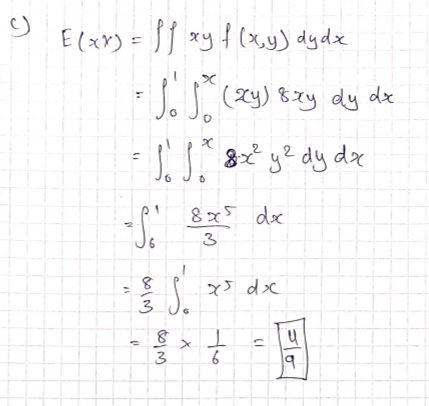 c) E(XY) = ∫∫ xy f(x,y) dydx
= ∫₀¹ ∫₀ˣ (xy) 8xy dy dx
= ∫₀¹ ∫₀ˣ 8x² y² dy dx
= ∫₀¹ 8x⁵/3 dx
= 8/3 ∫₀¹ x⁵ dx
= 8/3 × 1/6 = 4/9